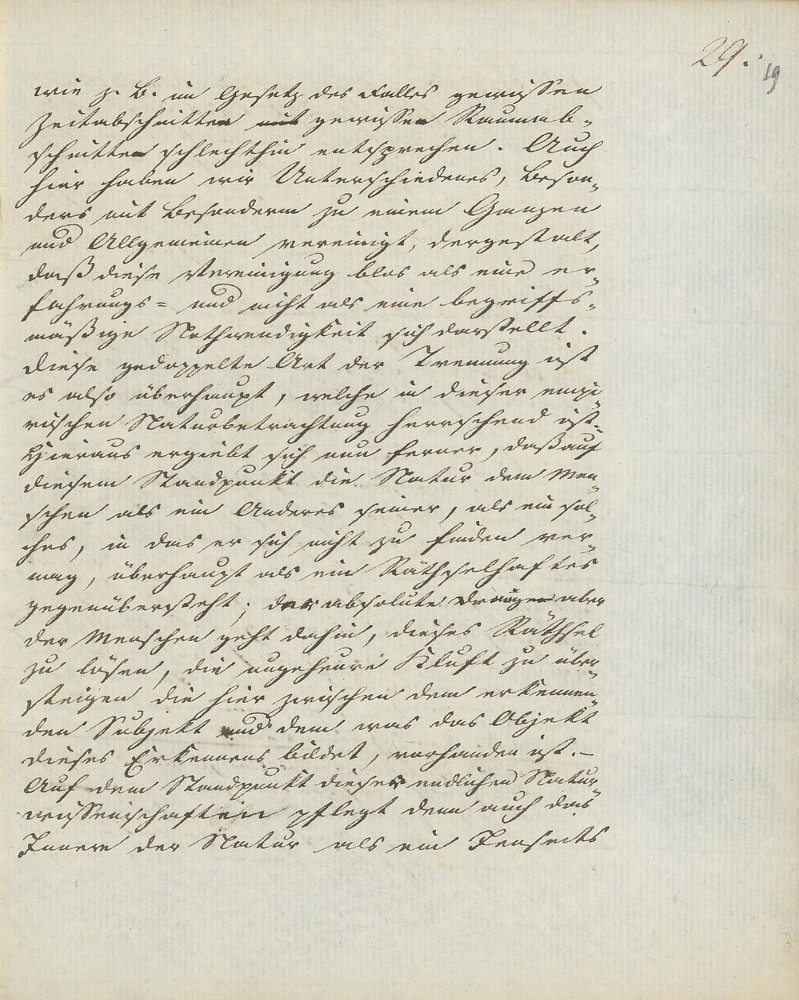 29.
19
wie z. B. im Gesetz des Falles gewissen
Zeitabschnitten mit gewissen Raumab-
schnitten schlechthin entsprechen. Auch
hier haben wir Unterschiedenes, Beson-
ders mit Besonderm zu einem Ganzen
und Allgemeinen vereinigt, dergestalt,
daß diese Vereinigung blos als eine er-
fahrungs- und nicht als eine begriffs-
mäßige Nothwendigkeit sich darstellt.
Diese gedoppelte Art der Trennung ist
es also überhaupt, welche in dieser empi-
rischen Naturbetrachtung herrschend ist.
Hieraus ergiebt sich nun ferner, daß auf
diesem Standpunkt die Natur dem Men-
schen als ein Anderes seiner, als ein sol-
ches, in das er sich nicht zu finden ver-
mag, überhaupt als ein Räthselhaftes
gegenübersteht; der absolute Drang aber
der Menschen geht dahin, dieses Räthsel
zu lösen, die ungeheure Kluft zu über-
steigen die hier zwischen dem erkennen-
den Subjekt und dem was das Objekt
dieses Erkennens bildet, vorhanden ist. –
Auf dem Standpunkt dieser endlichen Natur-
wissenschaften pflegt denn auch das
Innere der Natur als ein Jenseits